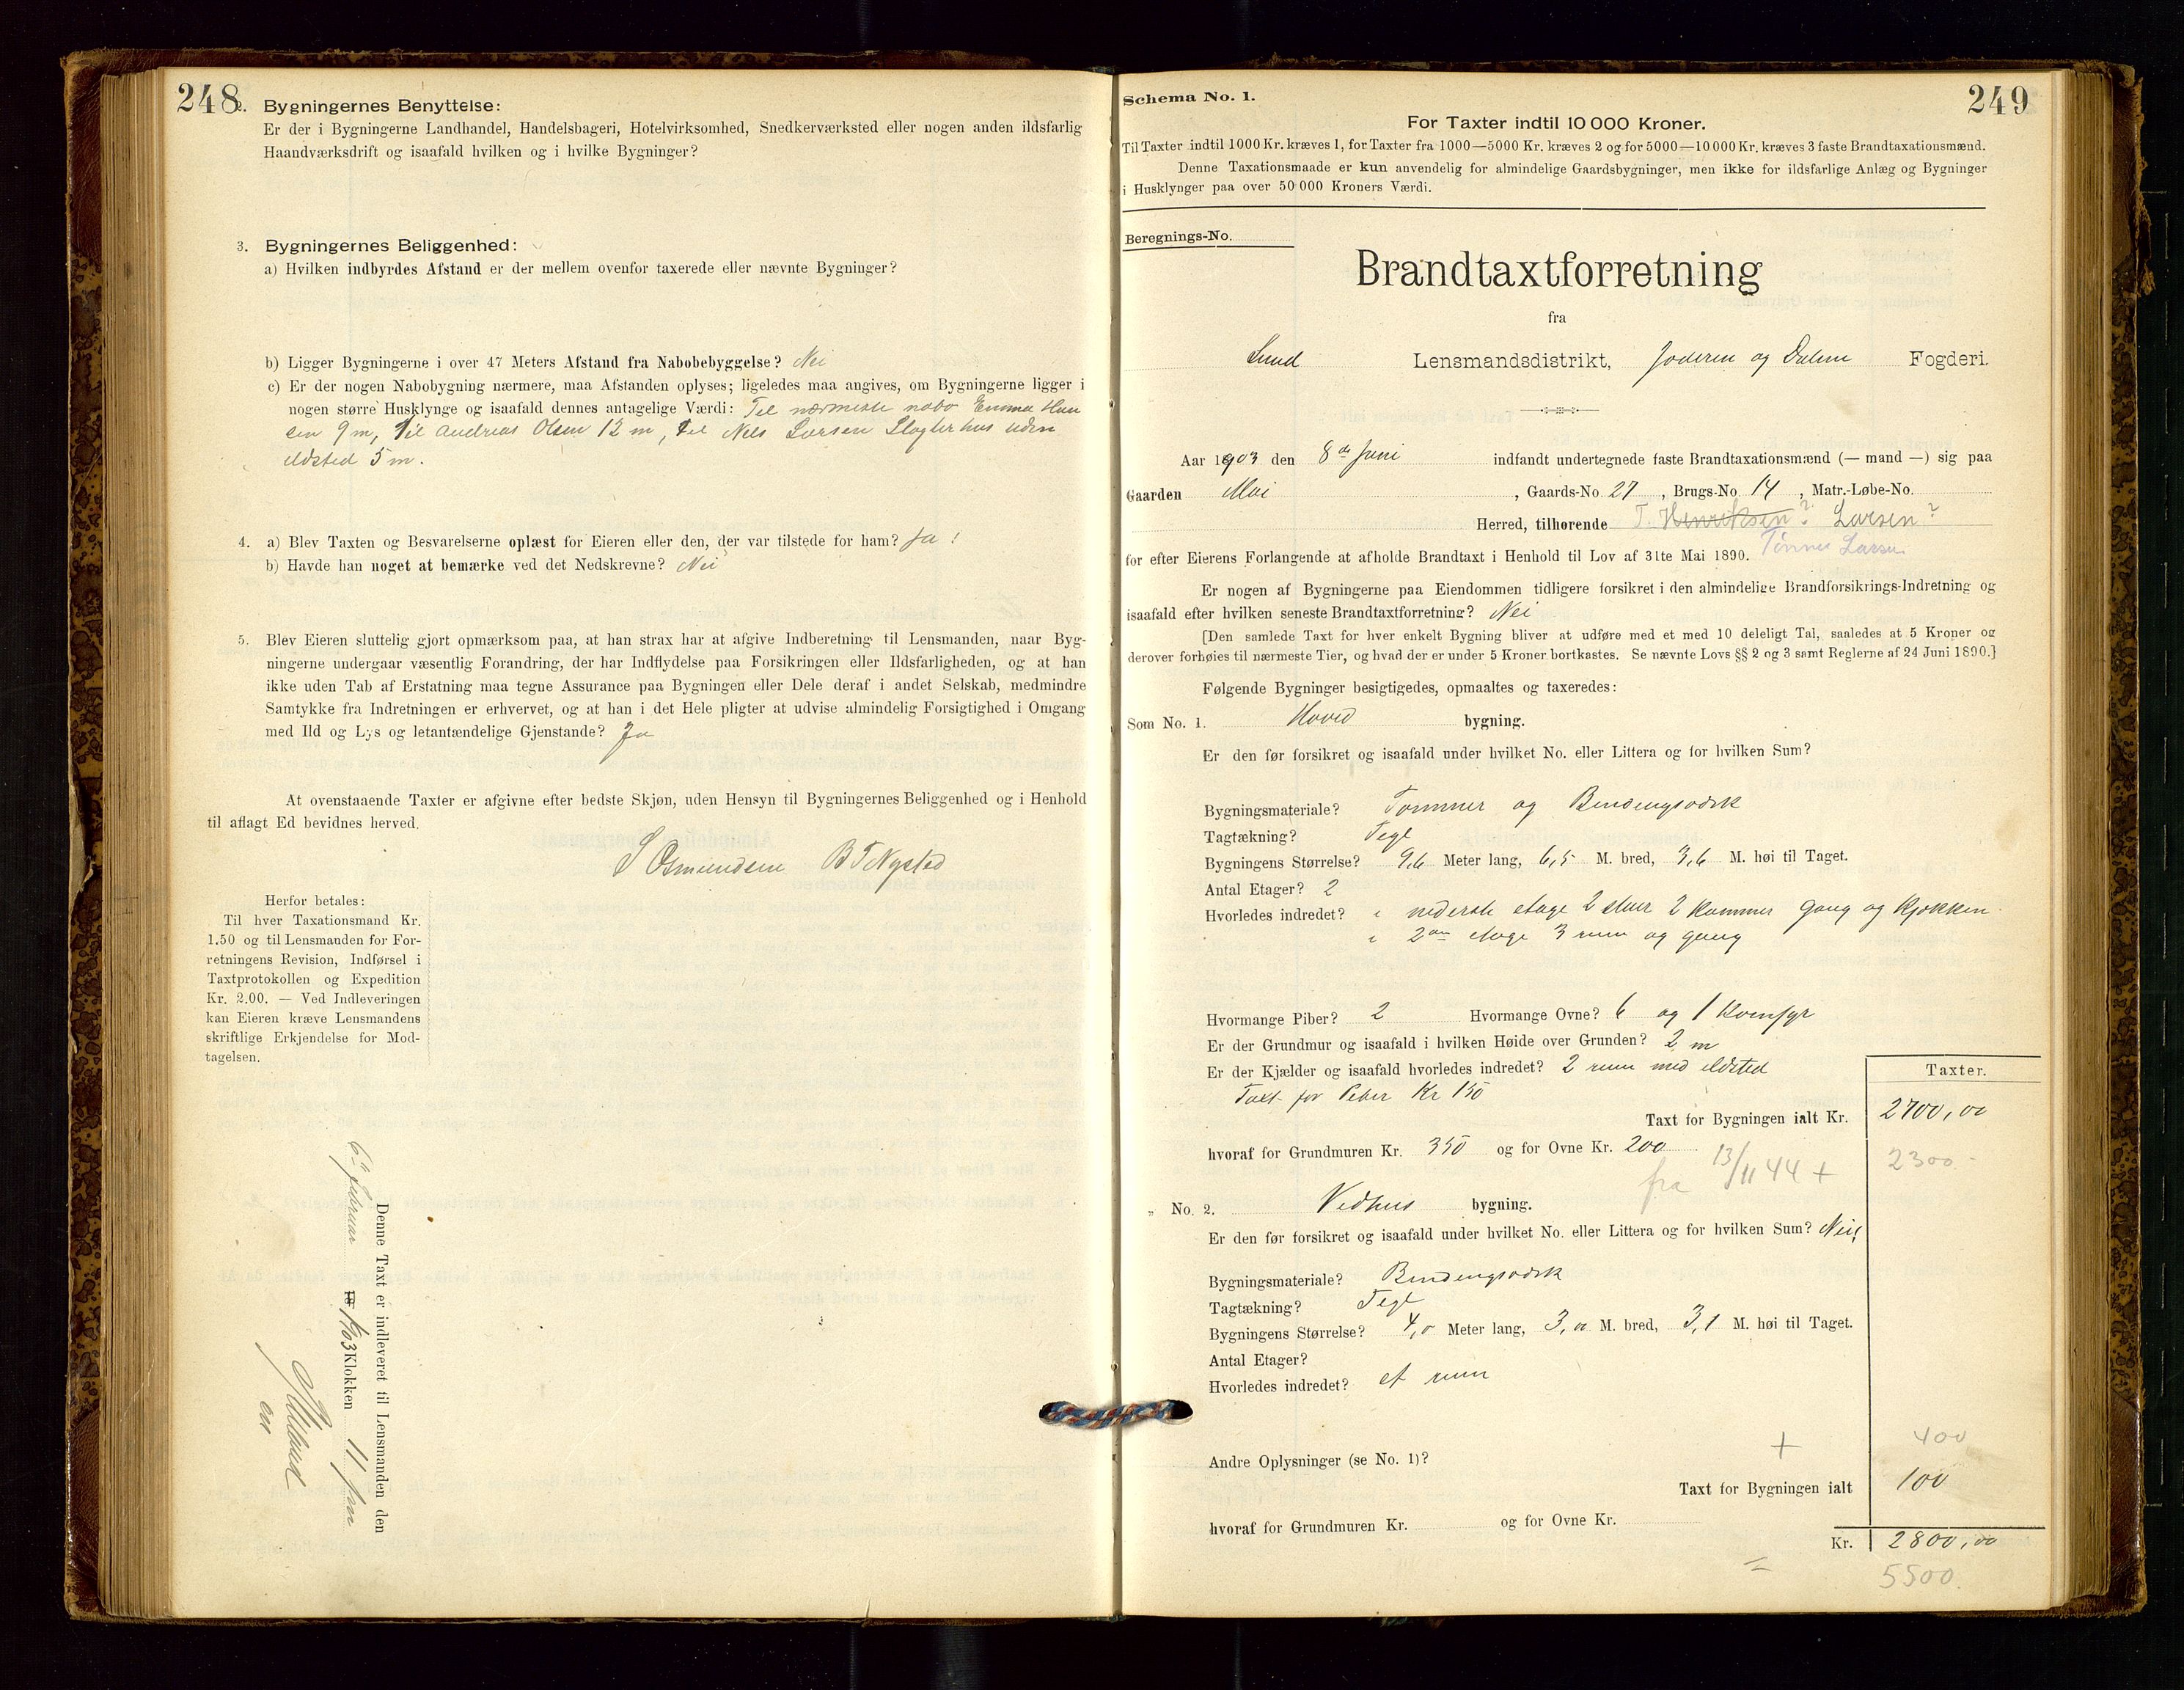 248
2. Bygningernes Benyttelse:
Er der i Bygningerne Landhandel, Handelsbageri, Hotelvirksomhed, Snedkerværksted eller nogen anden ildsfarlig
Haandværksdrift og isaafald hvilken og i hvilke Bygninger?
3. Bygningernes Beliggenhed:
a) Hvilken indbyrdes Afstand er der mellem ovenfor taxerede eller nævnte Bygninger?
b) Ligger Bygningerne i over 47 Meters Afstand fra Nabobebyggelse? Nei
c) Er der nogen Nabobygning nærmere, maa Afstanden oplyses; ligeledes maa angives, om Bygningerne ligger i
nogen større Husklynge og isaafald dennes antagelige Værdi: Til nærmeste nabo Emma Han
sen 9 m, til Andreas Olsen 12 m, til Nels Larsen Slagterhus uden
ildsted 5 m.
4. a) Blev Taxten og Besvarelserne oplæst for Eieren eller den, der var tilstede for ham? Ja!
b) Havde han noget at bemærke ved det Nedskrevne? Nei
5. Blev Eieren sluttelig gjort opmærksom paa, at han strax har at afgive Indberetning til Lensmanden, naar Byg-
ningerne undergaar væsentlig Forandring, der har Indflydelse paa Forsikringen eller Ildsfarligheden, og at han
ikke uden Tab af Erstatning maa tegne Assurance paa Bygningen eller Dele deraf i andet Selskab, medmindre
Samtykke fra Indretningen er erhvervet, og at han i det Hele pligter at udvise almindelig Forsigtighed i Omgang
med Ild og Lys og letantændelige Gjenstande? Ja
At ovenstaaende Taxter er afgivne efter bedste Skjøn, uden Hensyn til Bygningernes Beliggenhed og i Henhold
til aflagt Ed bevidnes herved.
S Osmundsen B T Nysted
Herfor betales:
Til hver Taxationsmand Kr.
1.50 og til Lensmanden for For-
retningens Revision, Indførsel i
Taxtprotokollen og Expedition
Kr. 2.00. — Ved Indleveringen
kan Eieren kræve Lensmandens
skriftlige Erkjendelse for Mod-
tagelsen.
Denne Taxt er indleveret til Lensmanden den
6te Februar 18 1903 Klokken 11 fm
249
Schema No. 1.
For Taxter indtil 10 000 Kroner.
Til Taxter indtil 1000 Kr. kræves 1, for Taxter fra 1000—5000 Kr. kræves 2 og for 5000—10 000 Kr. kræves 3 faste Brandtaxationsmænd.
Denne Taxationsmaade er kun anvendelig for almindelige Gaardsbygninger, men ikke for ildsfarlige Anlæg og Bygninger
i Husklynger paa over 50 000 Kroners Værdi.
Beregnings-No.
Brandtaxtforretning
fra
Lund Lensmandsdistrikt, Jæderen og Dalene Fogderi.
Aar 1903 den 8de Juni indfandt undertegnede faste Brandtaxationsmænd (— mand —) sig paa
Gaarden Moi, Gaards-No. 27, Brugs-No. 14, Matr.-Løbe-No.
Herred, tilhørende T. Henriksen? Larsen?
for efter Eierens Forlangende at afholde Brandtaxt i Henhold til Lov af 31te Mai 1890. Tønnes Larsen
Er nogen af Bygningerne paa Eiendommen tidligere forsikret i den almindelige Brandforsikrings-Indretning og
isaafald efter hvilken seneste Brandtaxtforretning? Nei
[Den samlede Taxt for hver enkelt Bygning bliver at udføre med et med 10 deleligt Tal, saaledes at 5 Kroner og
derover forhøies til nærmeste Tier, og hvad der er under 5 Kroner bortkastes. Se nævnte Lovs §§ 2 og 3 samt Reglerne af 24 Juni 1890.]
Følgende Bygninger besigtigedes, opmaaltes og taxeredes:
Som No. 1. Hoved bygning.
Er den før forsikret og isaafald under hvilket No. eller Littera og for hvilken Sum?
Bygningsmateriale? Tømmer og Bindingsværk
Tagtækning? Tegl
Bygningens Størrelse? 9,6 Meter lang, 6,5 M. bred, 3,6 M. høi til Taget.
Antal Etager? 2
Hvorledes indredet? i nederste etage 2 stuer 2 kammer gang og kjøkken
i 2den etage 3 rum og gang
Hvormange Piber? 2 Hvormange Ovne? 6 og 1 komfyr
Er der Grundmur og isaafald i hvilken Høide over Grunden? 2 m
Er der Kjælder og isaafald hvorledes indredet? 2 rum med ildsted
Taxt for Piber Kr 150
Taxter.
Taxt for Bygningen ialt Kr. 2700,00
hvoraf for Grundmuren Kr. 350 og for Ovne Kr. 200
fra 13/11 44 + 2300-
" No. 2. Vedhus bygning.
Er den før forsikret og isaafald under hvilket No. eller Littera og for hvilken Sum? Nei
Bygningsmateriale? Bindingsværk
Tagtækning? Tegl
Bygningens Størrelse? 4,0 Meter lang, 3,0 M. bred, 3,1 M. høi til Taget.
Antal Etager?
Hvorledes indredet? et rum
Andre Oplysninger (se No. 1)? + 400
Taxt for Bygningen ialt 100
hvoraf for Grundmuren Kr. og for Ovne Kr.
Kr. 2800,00
= 5500.